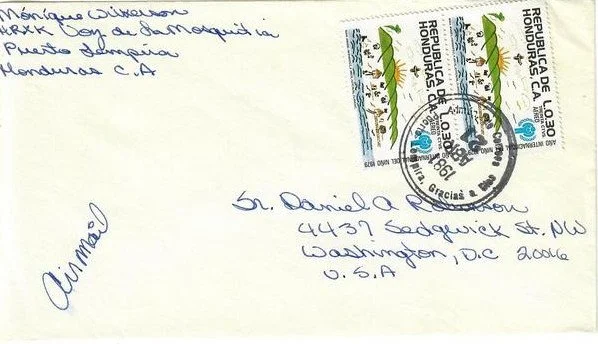 Mónique Wilkerson
HRXK Voz de La Mosquitia
Puerto Lempira
Honduras C.A
REPUBLICA DE
HONDURAS, C.A.
L0.30
AEREO
AÑO INTERNACIONAL DEL NIÑO 1979
REPUBLICA DE
HONDURAS, C.A.
L0.30
AEREO
AÑO INTERNACIONAL DEL NIÑO 1979
21
ABR
1981
Lempira, Gracias a Dios
Sr. Daniel A Robinson
4437 Sedgwick St. NW
Washington, D.C 20016
U.S.A
Airmail